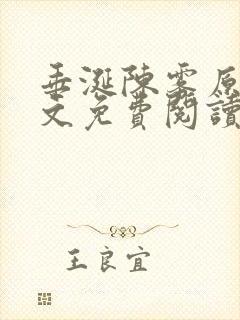 垂涎陳霧原
文免費閱讀
王良宜